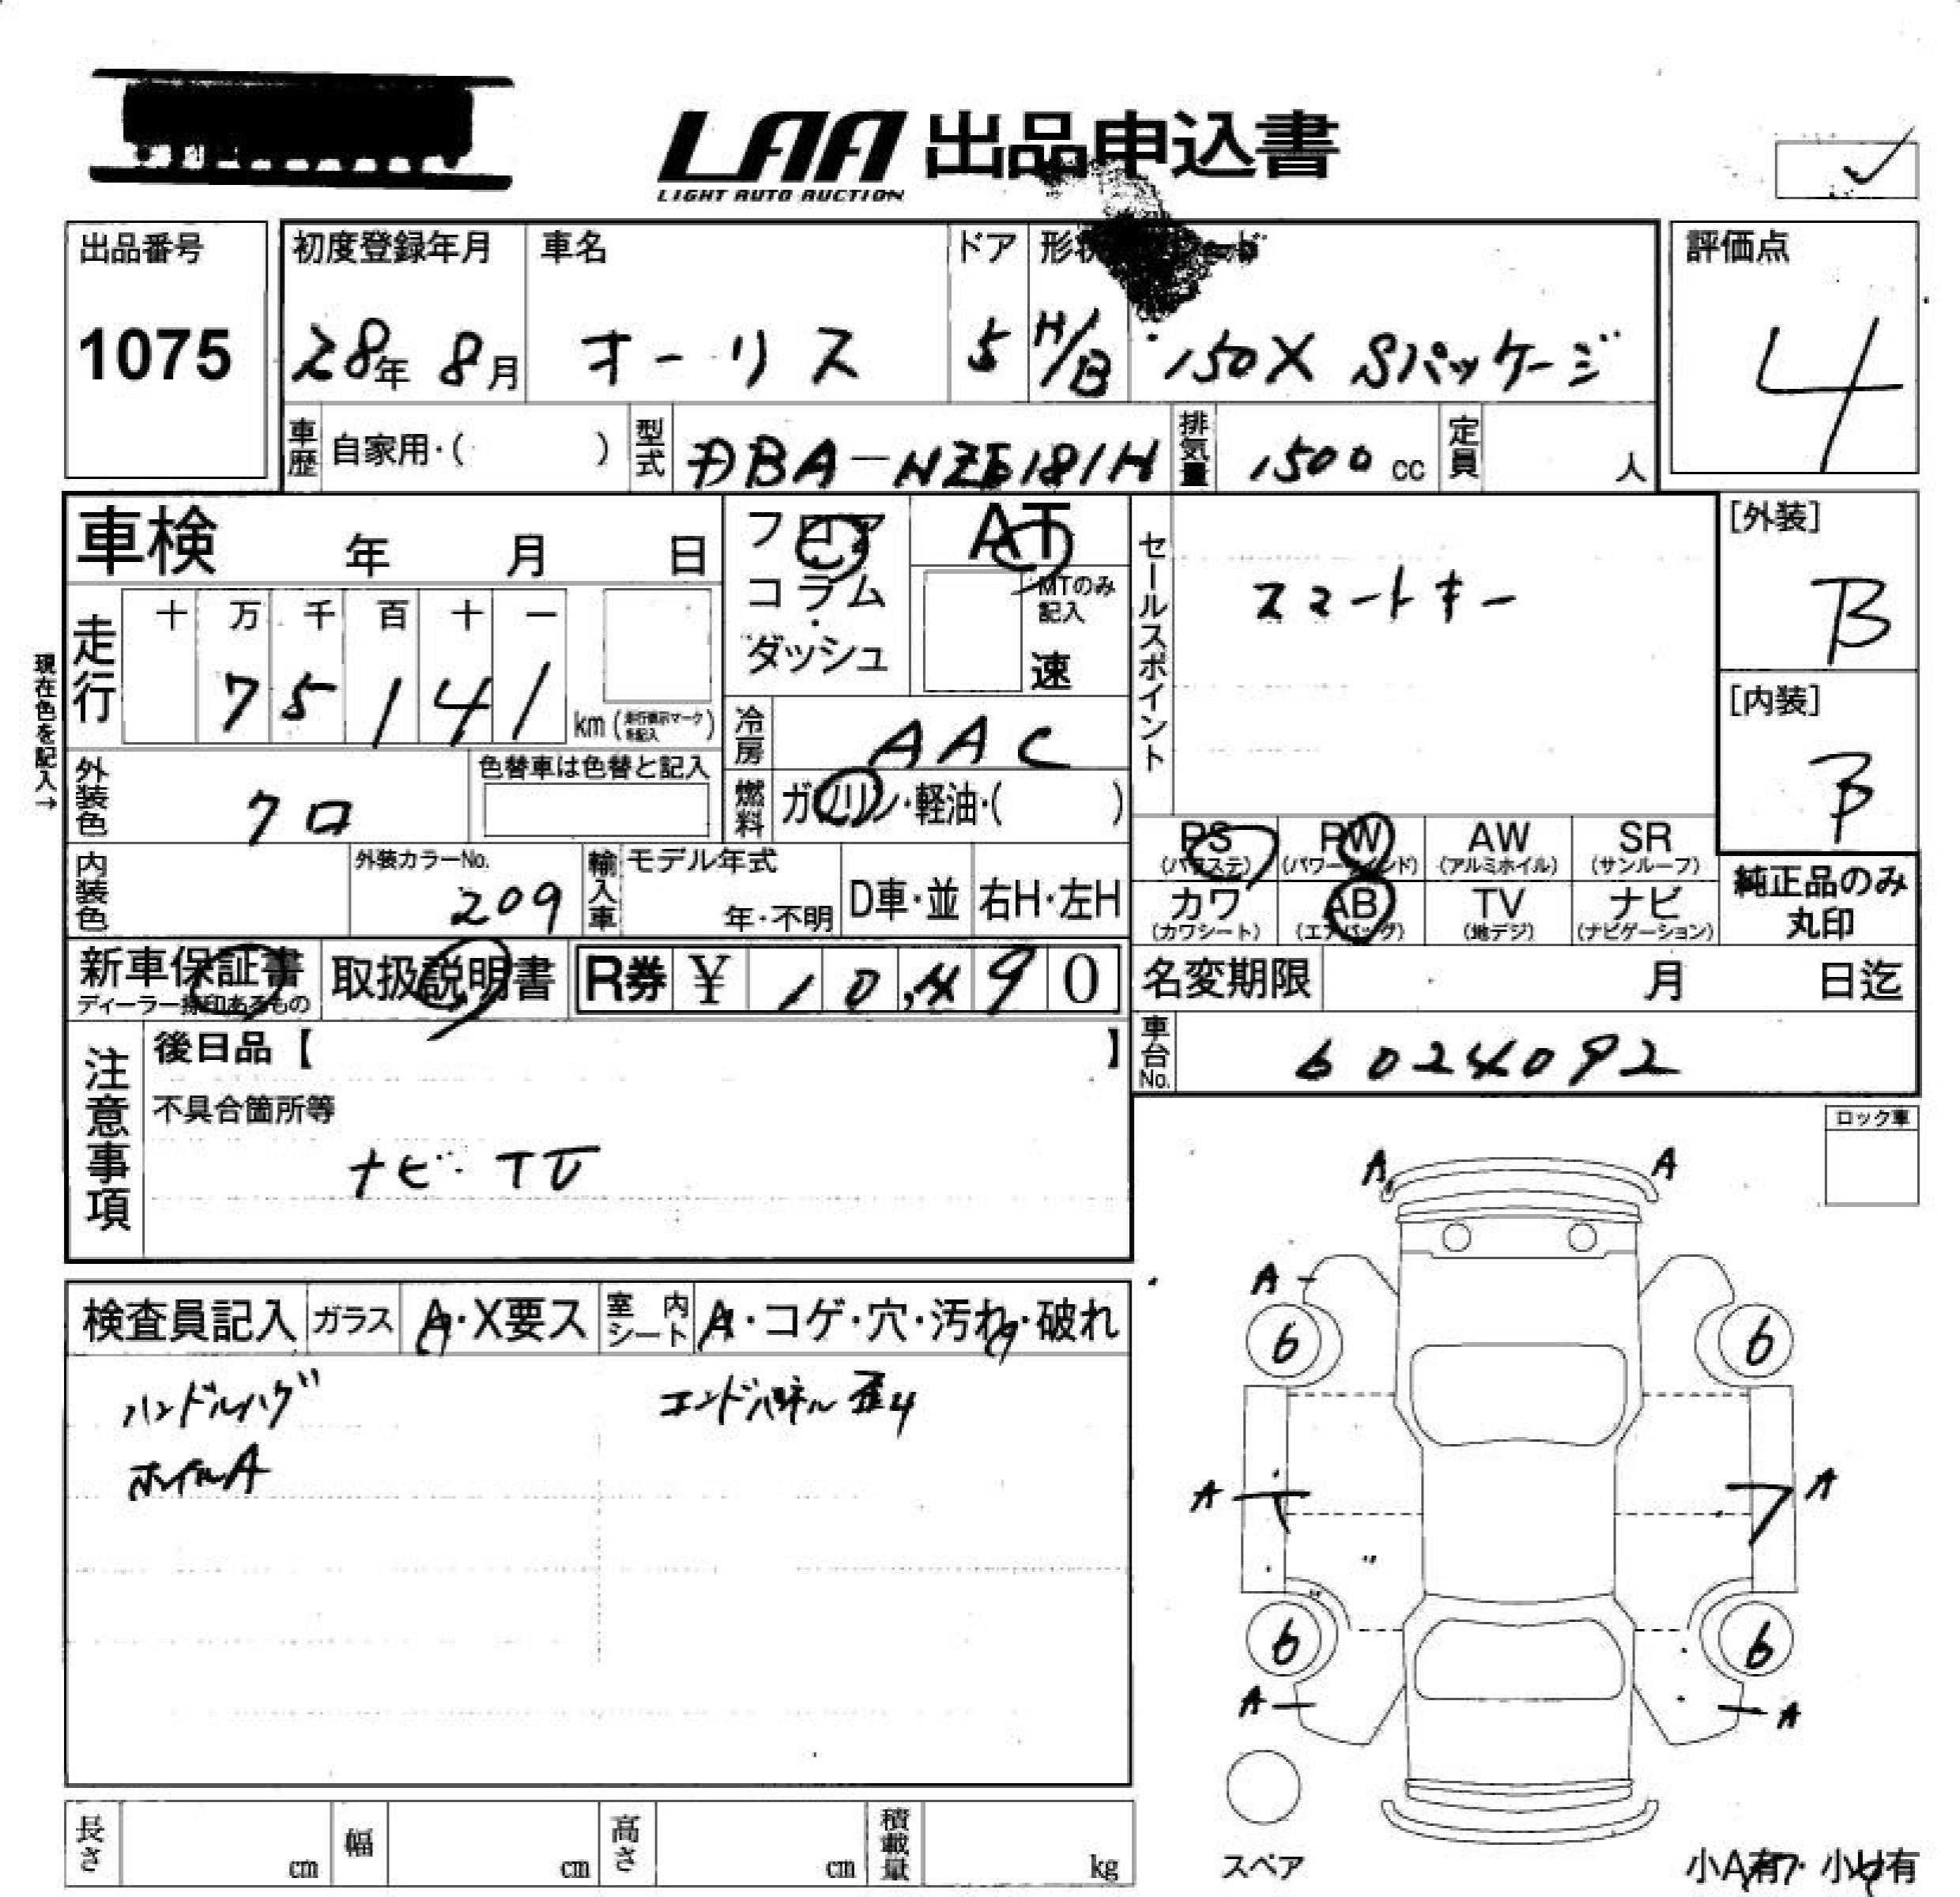 LAA 出品申込書
LIGHT AUTO AUCTION
出品番号
1075
初度登録年月
28年 8月
車名
オーリス
ドア
5
形状
H/B
150X Sパッケージ
評価点
4
車歴 自家用・( )
型式 DBA-NZE181H
排気量 1500 cc
定員 人
車検 年 月 日
フロア・コラム・ダッシュ
AT
MTのみ記入
速
セールスポイント
スマートキー
[外装]
B
[内装]
B
現在色を記入→
走行 十 万 千 百 十 一
7 5 1 4 1 km (走行表示マークを記入)
冷房 AAC
外装色 クロ
色替車は色替と記入
燃料 ガソリン・軽油・( )
内装色
外装カラーNo.
209
輸入車 モデル年式
年・不明
D車・並
右H・左H
PS (パワステ)
PW (パワーウインド)
AW (アルミホイル)
SR (サンルーフ)
カワ (カワシート)
AB (エアバッグ)
TV (地デジ)
ナビ (ナビゲーション)
純正品のみ丸印
新車保証書
ディーラー捺印あるもの
取扱説明書
R券 ¥ 10,490
名変期限 月 日迄
車台No. 6024092
注意事項
後日品【 】
不具合箇所等
ナビ・TV
ロック車
検査員記入
ガラス A・X要ス
室内シート A・コゲ・穴・汚れ・破れ
ハンドルハゲ
エンドパネル歪4
ホイルA
A A
A
6 6
A A
6 6
A A
スペア
小A有・小U有
長さ cm
幅 cm
高さ cm
積載量 kg